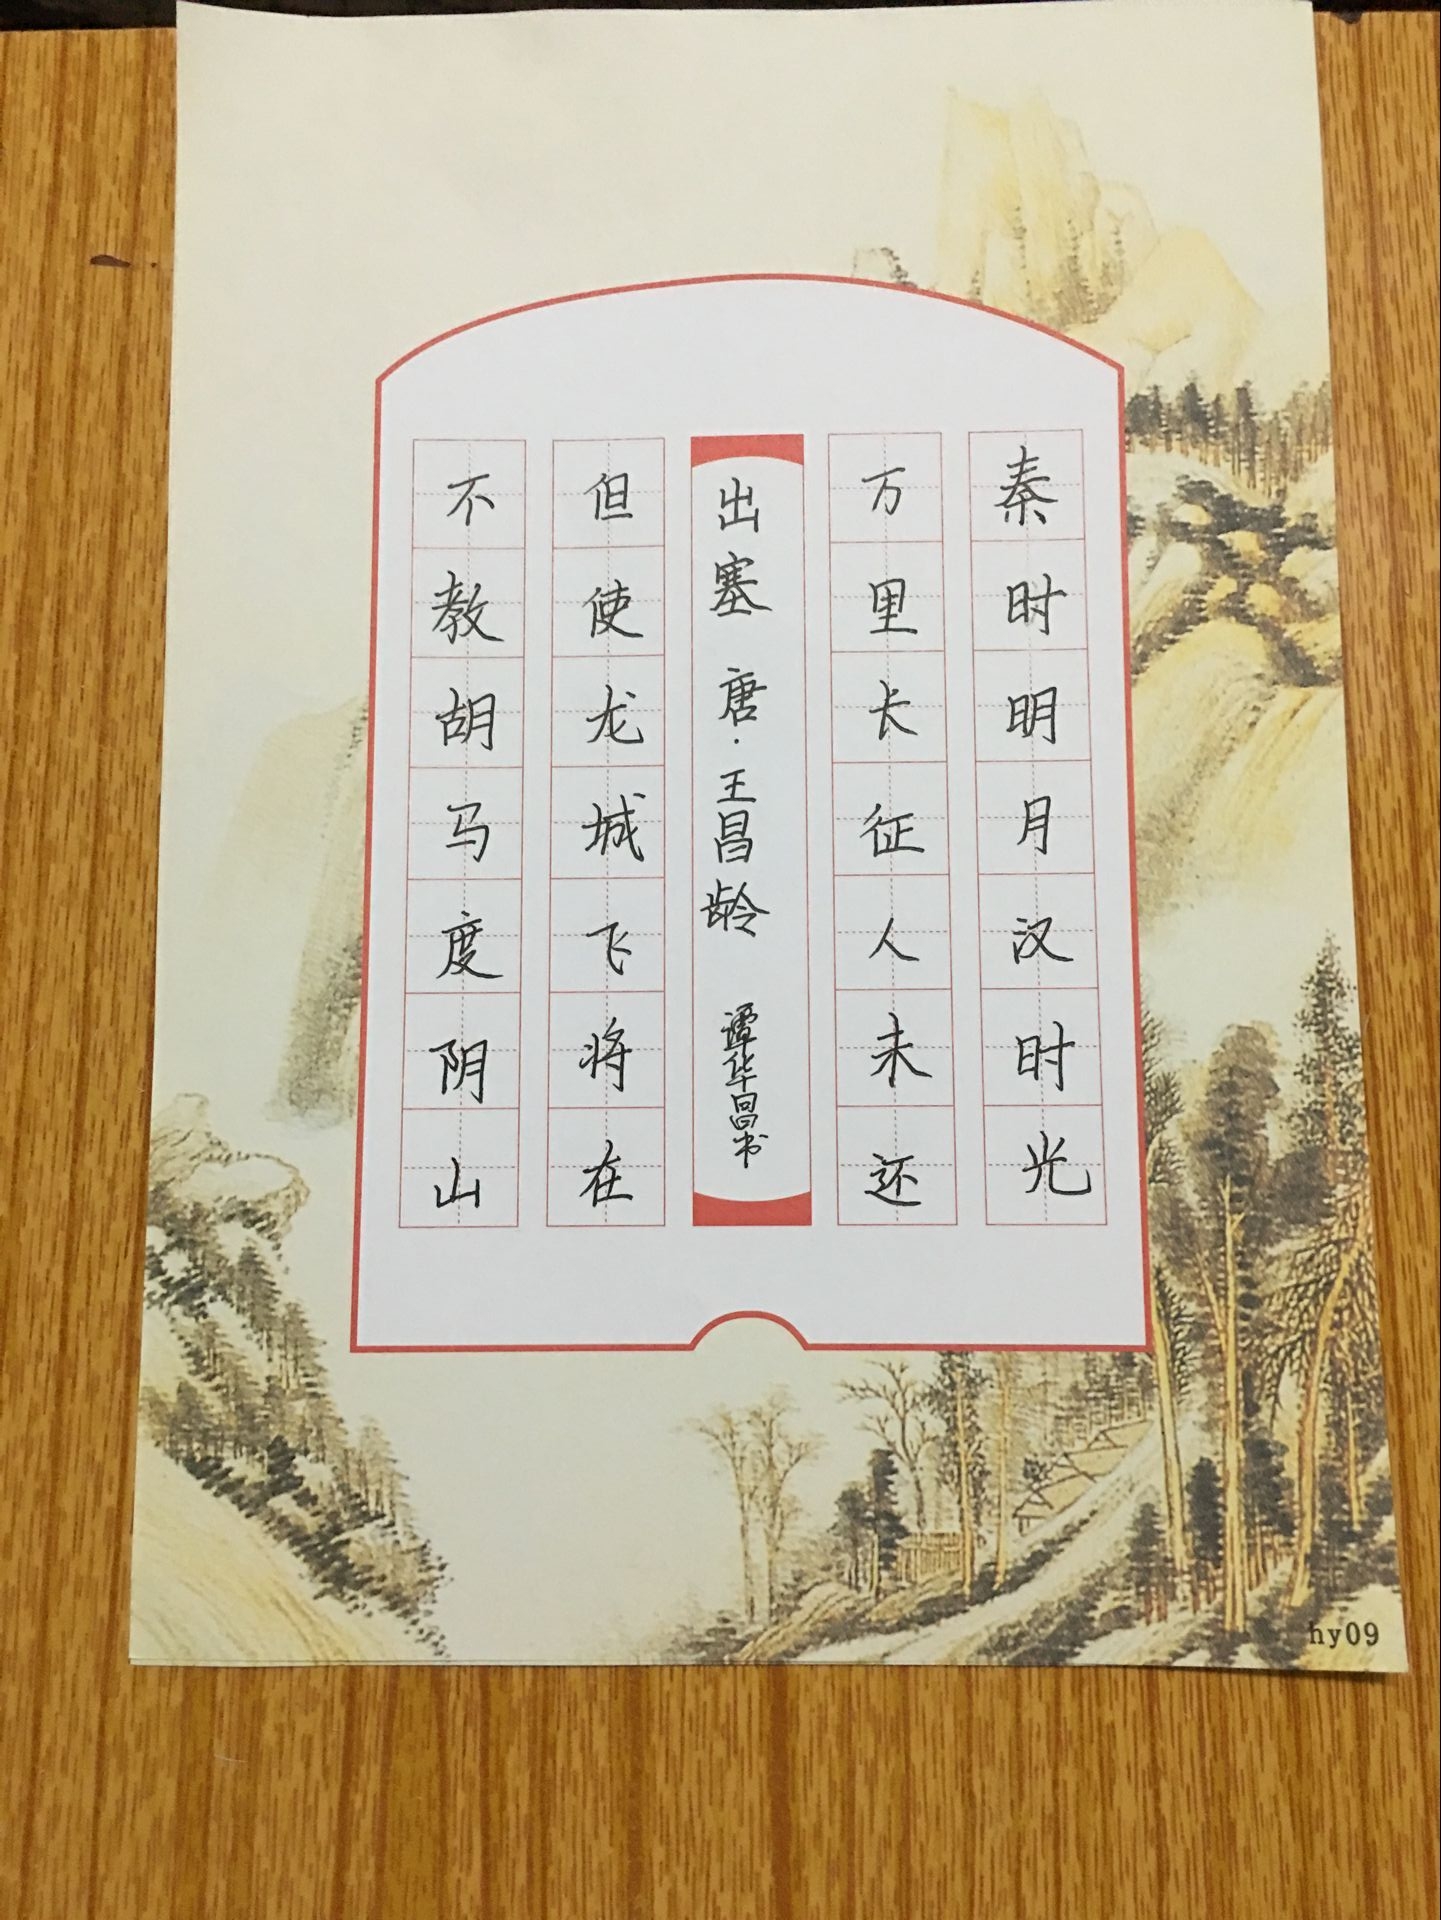 秦时明月汉时光
万里长征人未还
出塞 唐·王昌龄 谭华昌书
但使龙城飞将在
不教胡马度阴山
hy09